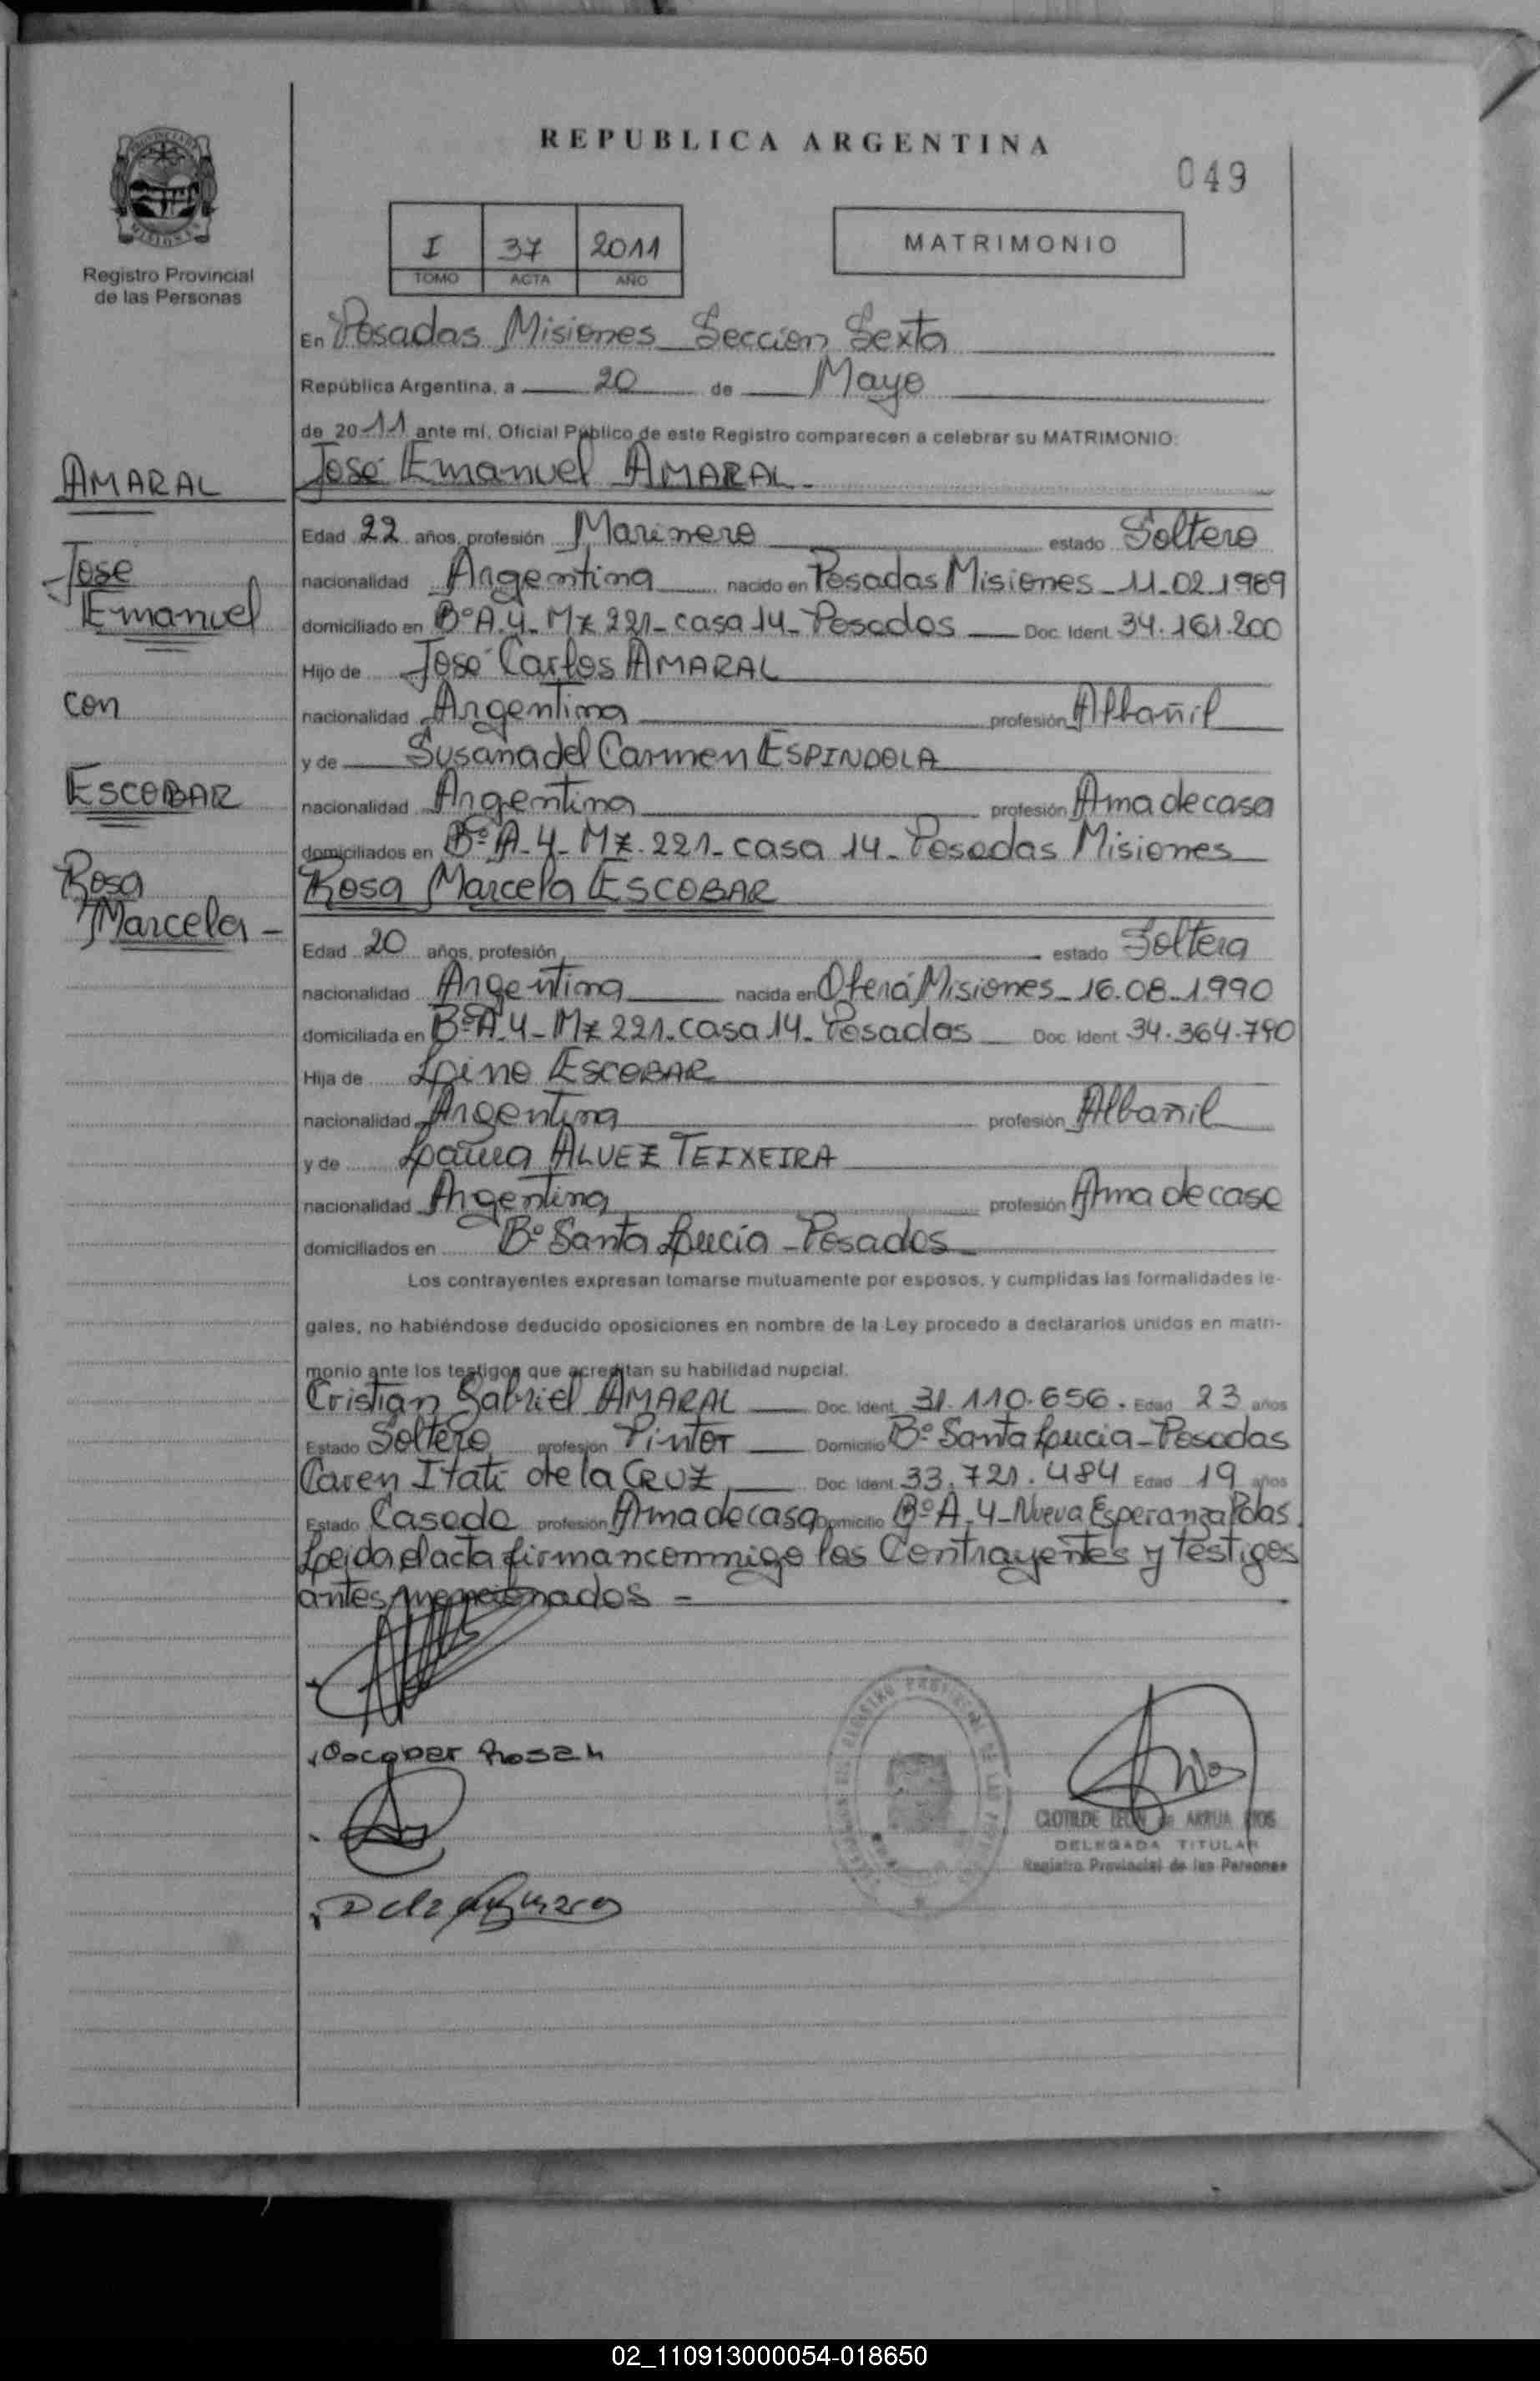 REPUBLICA ARGENTINA
049
Registro Provincial
de las Personas
I 37 2011
TOMO ACTA AÑO
MATRIMONIO
En Posadas Misiones Seccion Sexta
República Argentina, a 20 de Mayo
de 20 11 ante mí, Oficial Público de este Registro comparecen a celebrar su MATRIMONIO:
AMARAL
Jose Emanuel
con
ESCOBAR
Rosa
Marcela -
José Emanuel AMARAL
Edad 22 años, profesión Marinero estado Soltero
nacionalidad Argentina nacido en Posadas Misiones - 11-02-1989
domiciliado en Bº A-4- Mz 221- casa 14- Posadas Doc. Ident. 34.161.200
Hijo de José Carlos AMARAL
nacionalidad Argentina profesión Albañil
y de Susana del Carmen ESPINDOLA
nacionalidad Argentina profesión Ama de casa
domiciliados en Bº A-4- Mz. 221- casa 14- Posadas Misiones
Rosa Marcela ESCOBAR
Edad 20 años, profesión estado Soltera
nacionalidad Argentina nacida en Oberá Misiones - 16-08-1990
domiciliada en Bº A-4- Mz 221- casa 14- Posadas Doc. Ident. 34.364.790
Hija de Lino ESCOBAR
nacionalidad Argentina profesión Albañil
y de Laura ALVEZ TEIXEIRA
nacionalidad Argentina profesión Ama de casa
domiciliados en Bº Santa Lucia - Posadas -
Los contrayentes expresan tomarse mutuamente por esposos, y cumplidas las formalidades le-
gales, no habiéndose deducido oposiciones en nombre de la Ley procedo a declararlos unidos en matri-
monio ante los testigos que acreditan su habilidad nupcial.
Cristian Gabriel AMARAL Doc. Ident. 31.110.656. Edad 23 años
Estado Soltero profesión Pintor Domicilio Bº Santa Lucia - Posadas
Caren Itati de la CRUZ Doc. Ident. 33.721.484 Edad 19 años
Estado Casada profesión Ama de casa Domicilio Bº A-4- Nueva Esperanza Pdas.
Leida el acta firman conmigo los Contrayentes y testigos
antes mencionados -
Escobar Rosa M
CLOTILDE LEON de ARRUA RIOS
DELEGADA TITULAR
Registro Provincial de las Personas
02_110913000054-018650